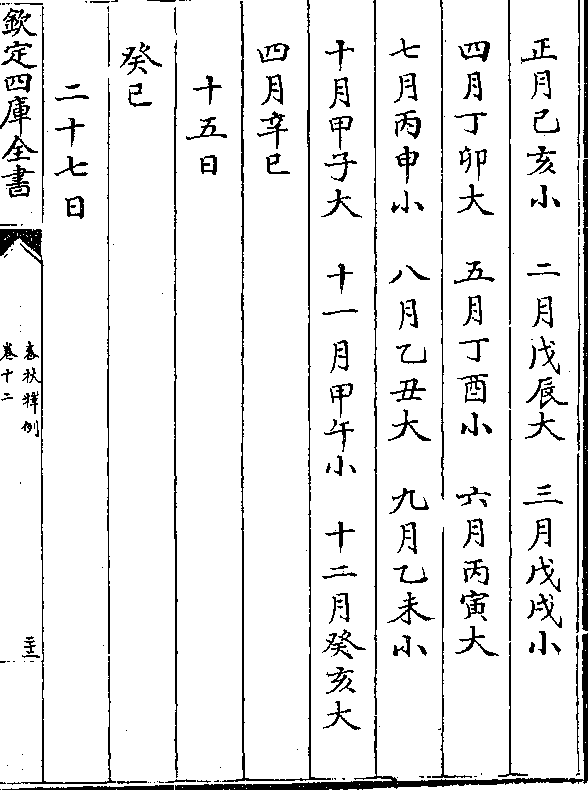 正月己亥小　二月戊辰大　三月戊戌小
四月丁卯大　五月丁酉小　六月丙寅大
七月丙申小　八月乙丑大　九月乙未小
十月甲子大　十一月甲午小　十二月癸亥大
四月辛巳
十五日
癸巳
二十七日
欽定四庫全書
春秋釋例
卷十二